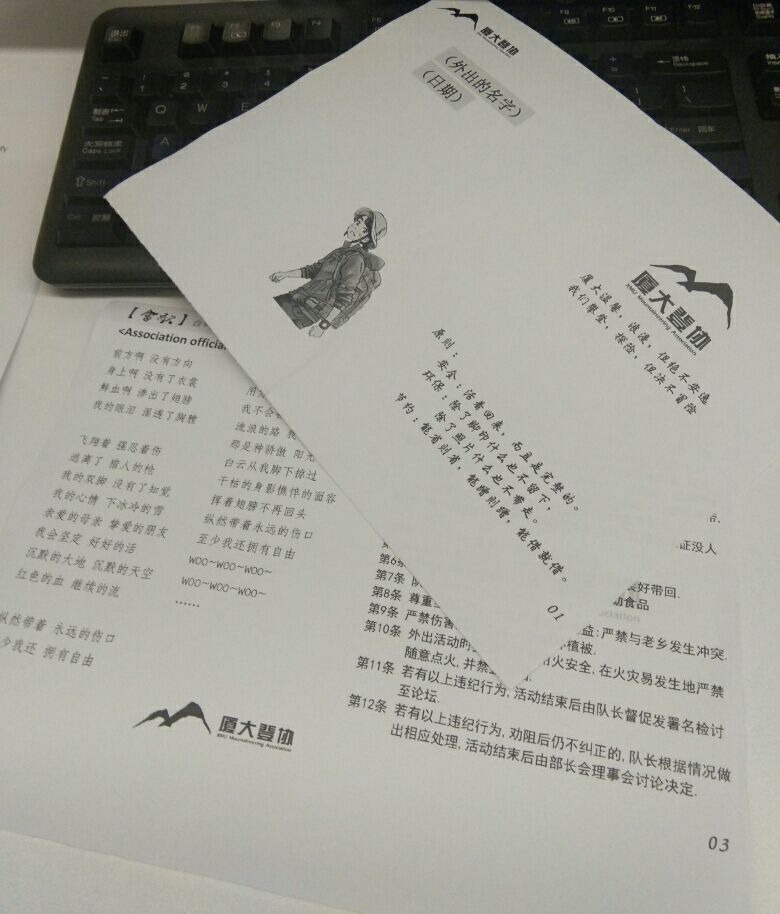 厦大登协
(外出的名字)
(日期)
厦大登协
XMU Mountaineering Association
厦大温馨，浪漫，但绝不安逸
我们攀登，探险，但决不冒险
原则：
安全：活着回来，而且是完整的。
环保：除了脚印什么也不留下，
除了照片什么也不带走。
节约：能省则省，能蹭则蹭，能借就借。
01
【会歌】
<Association official
前方啊 没有方向
身上啊 没有了衣裳
鲜血啊 渗出了翅膀
我的眼泪 湿透了胸膛
飞翔着 强忍着伤
逃离了 猎人的枪
我的双脚 没有了知觉
我的心情 下冰冷的雪
亲爱的母亲 挚爱的朋友
我会坚定 好好的活
沉默的大地 沉默的天空
红色的血 继续的流
纵然带着 永远的伤口
少我还 拥有自由
我不会
流浪的路 我
那是种骄傲 阳光
白云从我脚下掠过
干枯的身影憔悴的面容
挥着翅膀不再回头
纵然带着永远的伤口
至少我还拥有自由
woo~woo~woo~
woo~woo~woo~
......
厦大登协
XMU Mountaineering Association
证没人
第6条
好带回.
第7条
食品
第8条 尊重
益; 严禁与老乡发生冲突.
第9条 严禁伤害
植被.
第10条 外出活动时
用火安全, 在火灾易发生地严禁
随意点火, 并禁
第11条 若有以上违纪行为, 活动结束后由队长督促发署名检讨
至论坛.
第12条 若有以上违纪行为, 劝阻后仍不纠正的, 队长根据情况做
出相应处理, 活动结束后由部长会理事会讨论决定.
03
退出
Esc
F1
F2
F3
F4
F5
F9
F10
F11
F12
退格
Backspace
制表
Tab
Q
W
E
大写锁定
Caps Lock
A
Shift
Ctrl
控制
Enter 回车